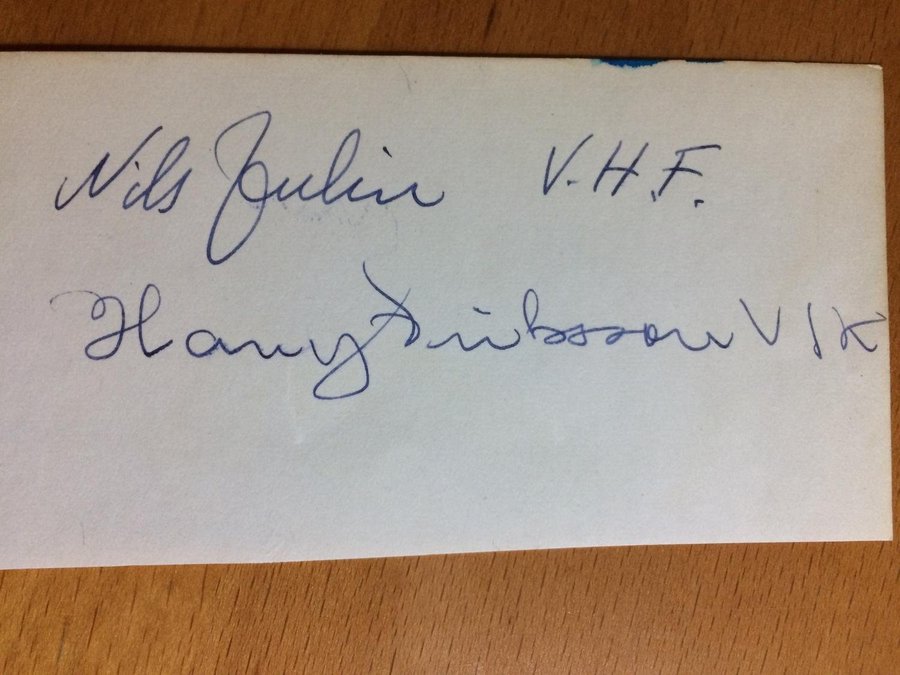 Nils Julin V.H.F.
Harry Eriksson VIK